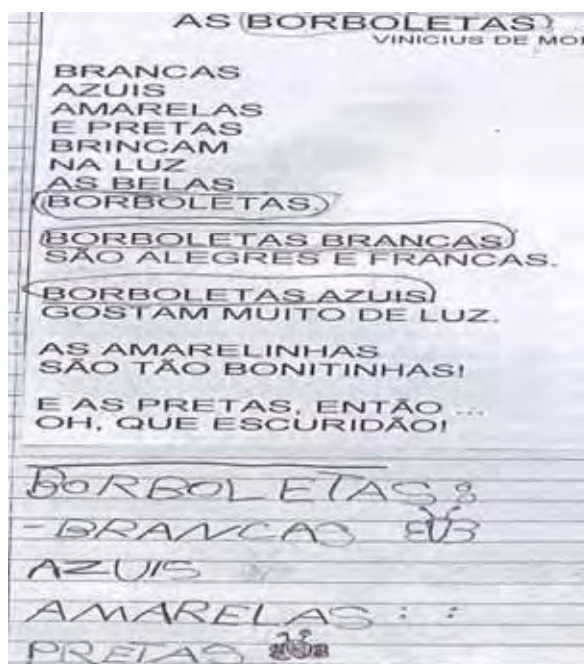 AS BORBOLETAS
VINICIUS DE MO
BRANCAS
AZUIS
AMARELAS
E PRETAS
BRINCAM
NA LUZ
AS BELAS
BORBOLETAS
BORBOLETAS BRANCAS
SÃO ALEGRES E FRANCAS.
BORBOLETAS AZUIS
GOSTAM MUITO DE LUZ.
AS AMARELINHAS
SÃO TÃO BONITINHAS!
E AS PRETAS, ENTÃO ...
OH, QUE ESCURIDÃO!
BORBOLETAS:
- BRANCAS
AZUIS
AMARELAS : :
PRETAS